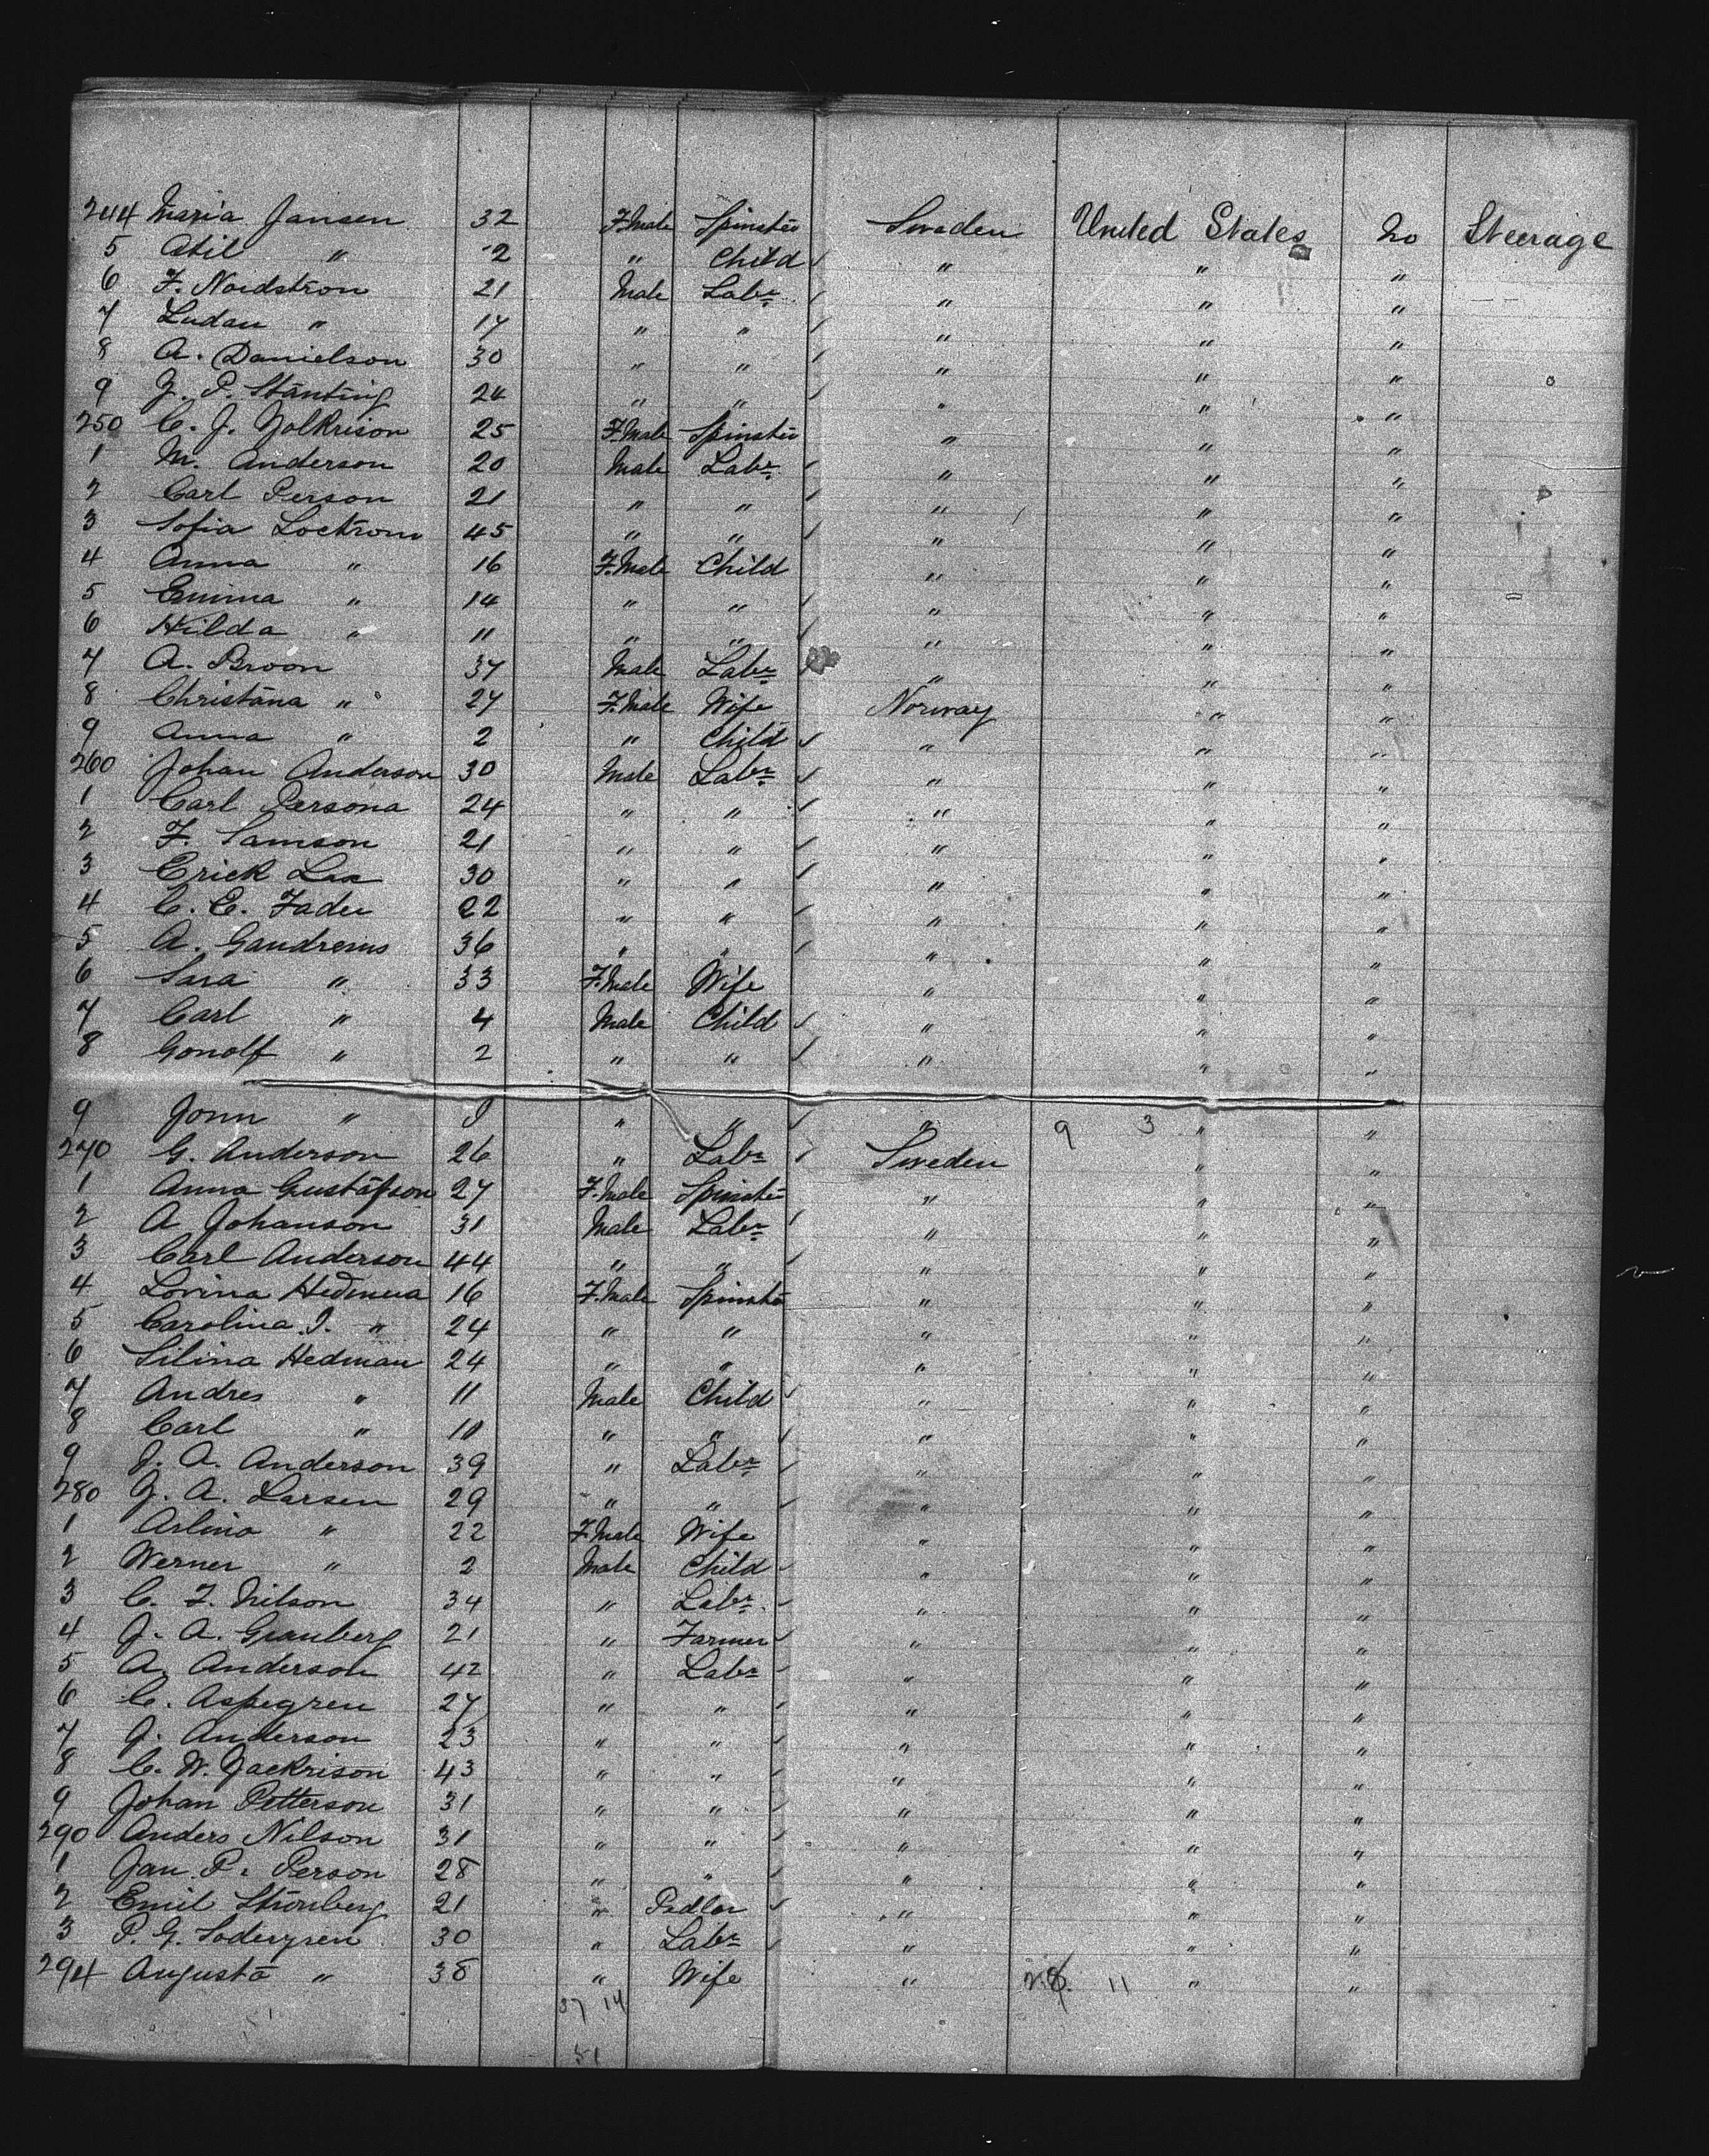 244 Maria Jansen 32 F.Male Spinster Sweden United States No Steerage
5 Atil " 2 " Child " " "
6 F. Nordstron 21 Male Labr " " "
7 Ludau " 17 " " " " "
8 A. Danielson 30 " " " " "
9 G. P. Stanting 24 " " " " "
250 C. J. Yolkrison 25 F.Male Spinster " " "
1 M. Anderson 20 Male Labr " " "
2 Carl Person 21 " " " " "
3 Sofia Loctrom 45 " " " " "
4 Anna " 16 F.Male Child " " "
5 Emma " 14 " " " " "
6 Hilda " 11 " " " " "
7 A. Broon 37 Male Labr " " "
8 Christana " 27 F.Male Wife Norway " "
9 Anna " 2 " Child " " "
260 Johan Anderson 30 Male Labr " " "
1 Carl Persona 24 " " " " "
2 F. Samson 21 " " " " "
3 Erick Lea 30 " " " " "
4 C. E. Fader 22 " " " " "
5 A. Gaudreius 36 " " " " "
6 Sara " 33 F.Male Wife " " "
7 Carl " 4 Male Child " " "
8 Gonolf " 2 " " " " "
9 Jonn " " " " 9 3 " "
270 G. Anderson 26 " Labr Sweden " "
1 Anna Gustafson 27 F.Male Spinster " " "
2 A Johanson 31 Male Labr " " "
3 Carl Anderson 44 " " " " "
4 Lovina Hedmua 16 F.Male Spinster " " "
5 Carolina J. " 24 " " " " "
6 Silina Hedman 24 " " " " "
7 Andres " 11 Male Child " " "
8 Carl " 10 " " " " "
9 J. A. Anderson 39 " Labr " " "
280 G. A. Larsen 29 " " " " "
1 Arlina " 22 F.Male Wife " " "
2 Werner " 2 Male Child " " "
3 C. F. Nilson 34 " Labr " " "
4 J. A. Granberg 21 " Farmer " " "
5 A. Anderson 42 " Labr " " "
6 C. Aspegren 27 " " " " "
7 J. Anderson 23 " " " " "
8 C. W. Jackrison 43 " " " " "
9 Johan Petterson 31 " " " " "
290 Anders Nilson 31 " " " " "
1 Jan P. Person 28 " " " " "
2 Emil Stronberg 21 " Pedler " " "
3 P. G. Sodergren 30 " Labr " " "
294 Augusta " 38 " Wife " 11 " "
37 14
51